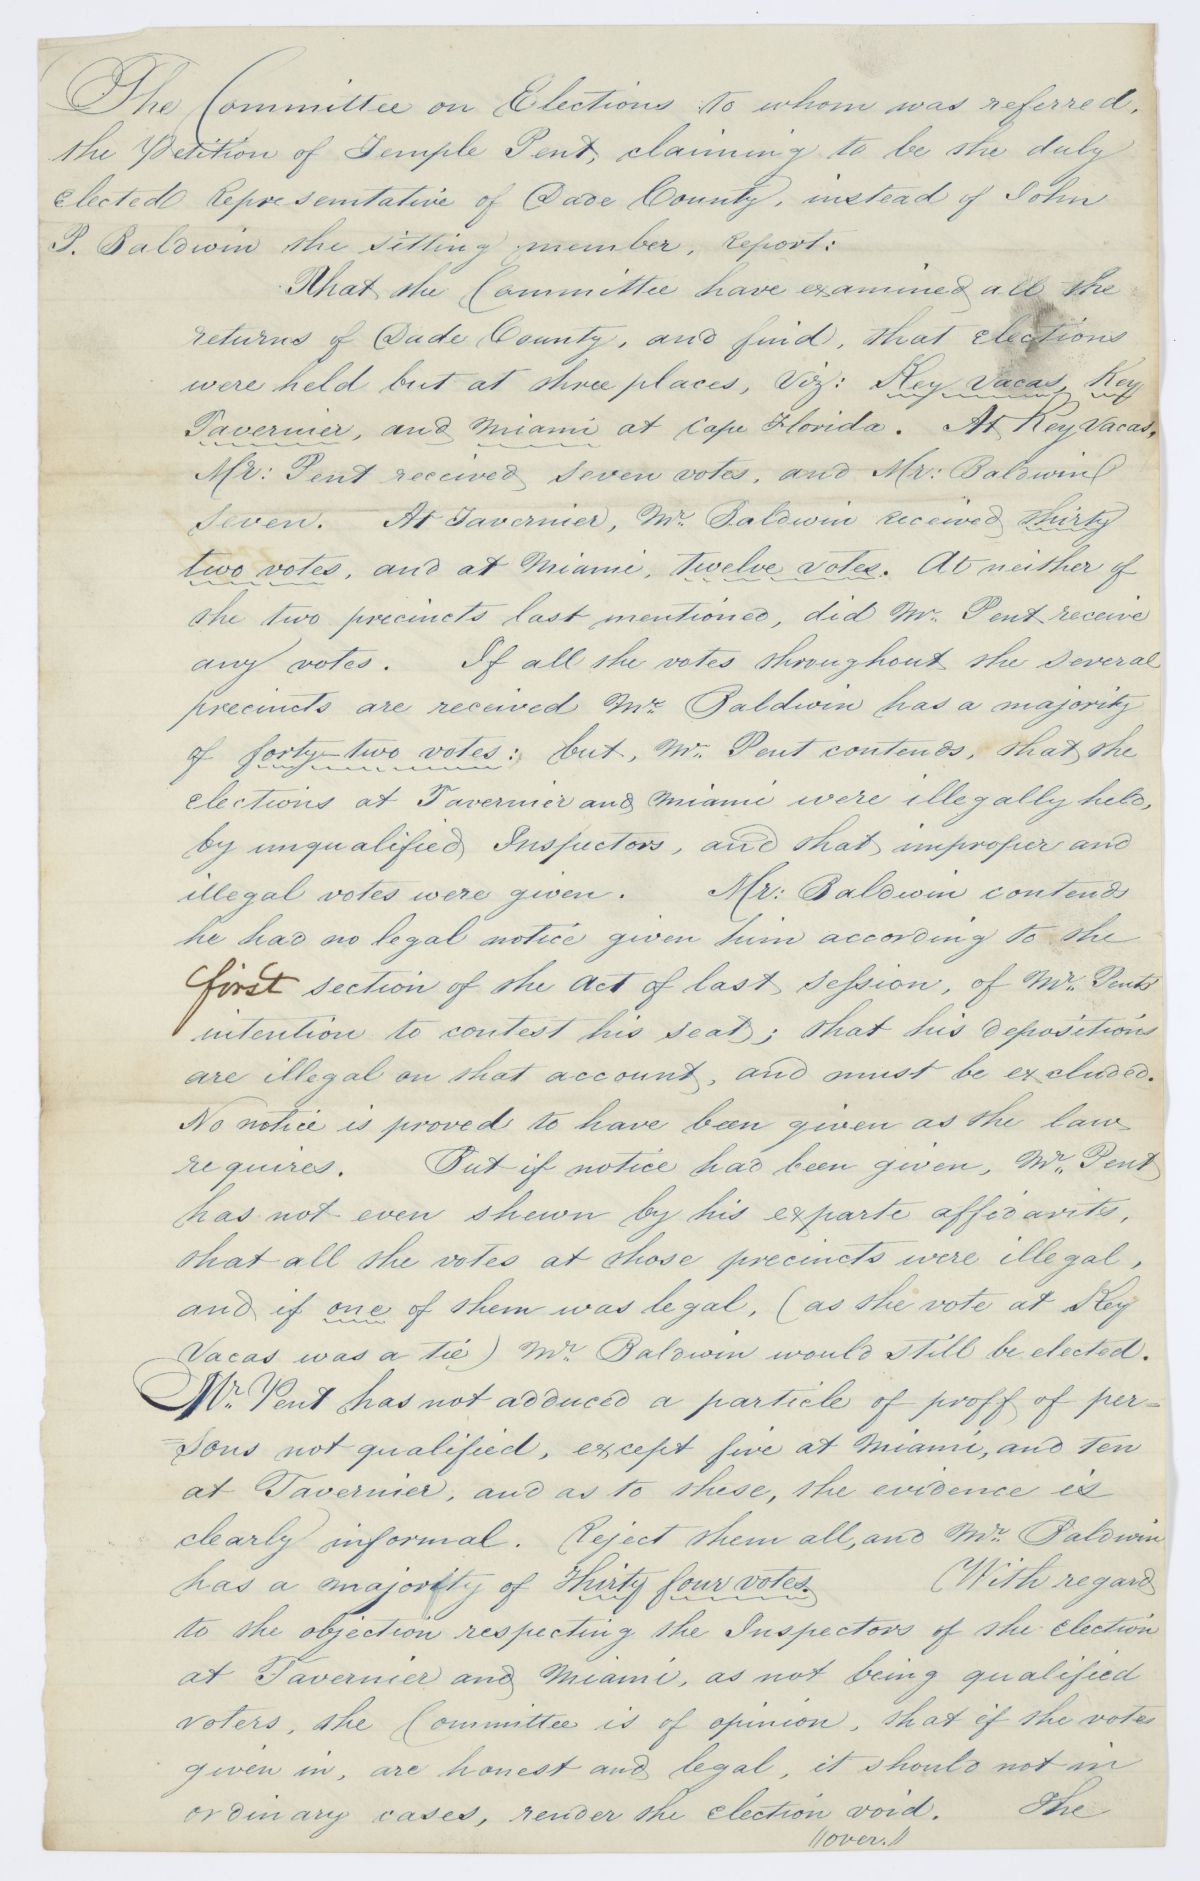 The Committee on Elections to whom was referred,
the Petition of Temple Pent, claiming to be the duly
elected Representative of Dade County, instead of John
P. Baldwin the sitting member, Report:
That the Committee have examined all the
returns of Dade County, and find, that elections
were held but at three places, Viz: Key Vacas, Key
Tavernier, and Miami at Cape Florida. At Key Vacas,
Mr: Pent received seven votes, and Mr: Baldwin
seven. At Tavernier, Mr. Baldwin received thirty
two votes, and at Miami, twelve votes. At neither of
the two precincts last mentioned, did Mr. Pent receive
any votes. If all the votes throughout the several
precincts are received Mr. Baldwin has a majority
of forty-two votes: but, Mr. Pent contends, that the
elections at Tavernier and Miami were illegally held,
by unqualified Inspectors, and that improper and
illegal votes were given. Mr: Baldwin contends
he had no legal notice given him according to the
first section of the Act of last session, of Mr. Pents
intention to contest his seat; that his depositions
are illegal on that account, and must be excluded.
No notice is proved to have been given as the law
requires. But if notice had been given, Mr. Pent
has not even shewn by his exparte affidavits,
that all the votes at those precincts were illegal,
and if one of them was legal, (as the vote at Key
Vacas was a tie) Mr. Baldwin would still be elected.
Mr. Pent has not adduced a particle of proff of per=
=sons not qualified, except five at Miami, and Ten
at Tavernier, and as to these, the evidence is
clearly informal. Reject them all, and Mr. Baldwin
has a majority of thirty four votes. With regard
to the objection respecting the Inspectors of the election
at Tavernier and Miami, as not being qualified
voters, the Committee is of opinion, that if the votes
given in, are honest and legal, it should not in
ordinary cases, render the election void. The
"over."